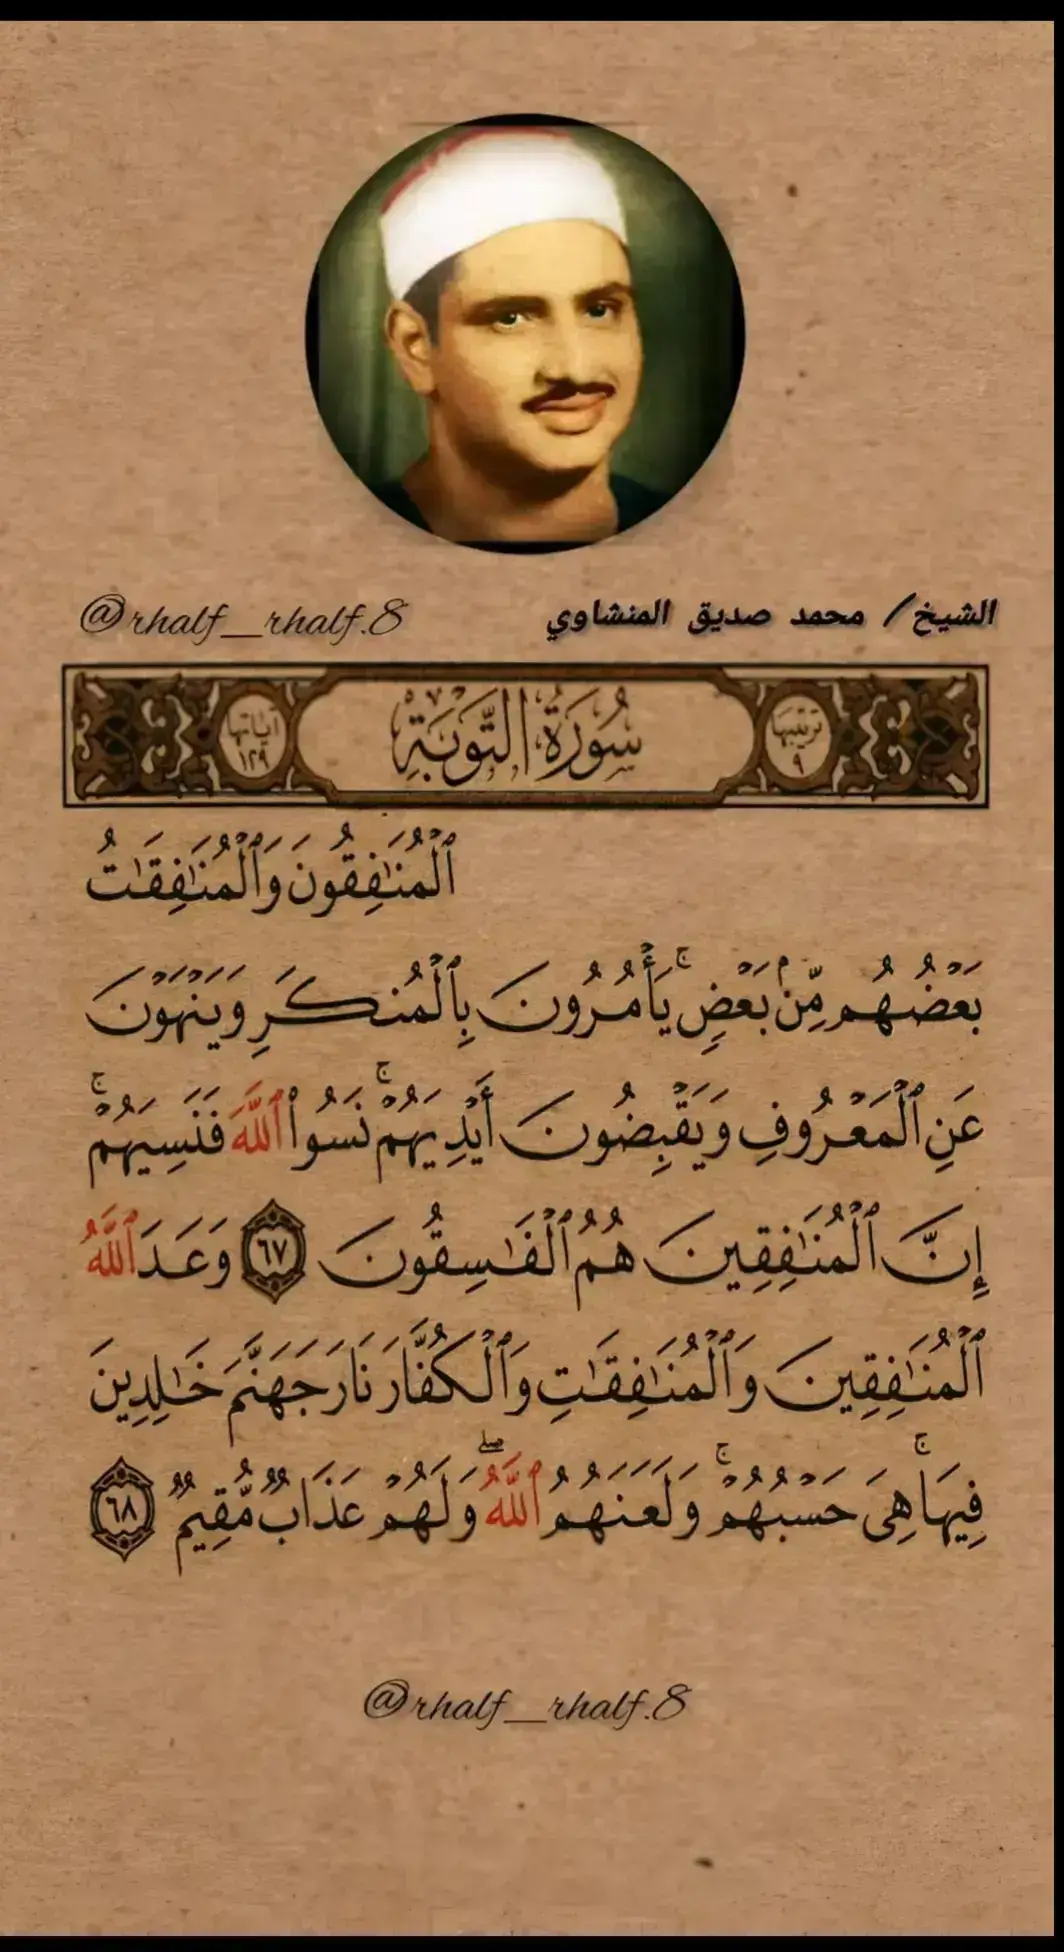 الشيخ/ محمد صديق المنشاوي
@rhalf__rhalf.8
ترتيبها ٩
سُورَةُ التَّوْبَةِ
آياتها ١٢٩
ٱلْمُنَٰفِقُونَ وَٱلْمُنَٰفِقَٰتُ
بَعْضُهُم مِّنۢ بَعْضٍۚ يَأْمُرُونَ بِٱلْمُنكَرِ وَيَنْهَوْنَ
عَنِ ٱلْمَعْرُوفِ وَيَقْبِضُونَ أَيْدِيَهُمْۚ نَسُوا۟ ٱللَّهَ فَنَسِيَهُمْۚ
إِنَّ ٱلْمُنَٰفِقِينَ هُمُ ٱلْفَٰسِقُونَ ٦٧ وَعَدَ ٱللَّهُ
ٱلْمُنَٰفِقِينَ وَٱلْمُنَٰفِقَٰتِ وَٱلْكُفَّارَ نَارَ جَهَنَّمَ خَٰلِدِينَ
فِيهَاۚ هِىَ حَسْبُهُمْۚ وَلَعَنَهُمُ ٱللَّهُۖ وَلَهُمْ عَذَابٌ مُّقِيمٌ ٦٨
@rhalf__rhalf.8